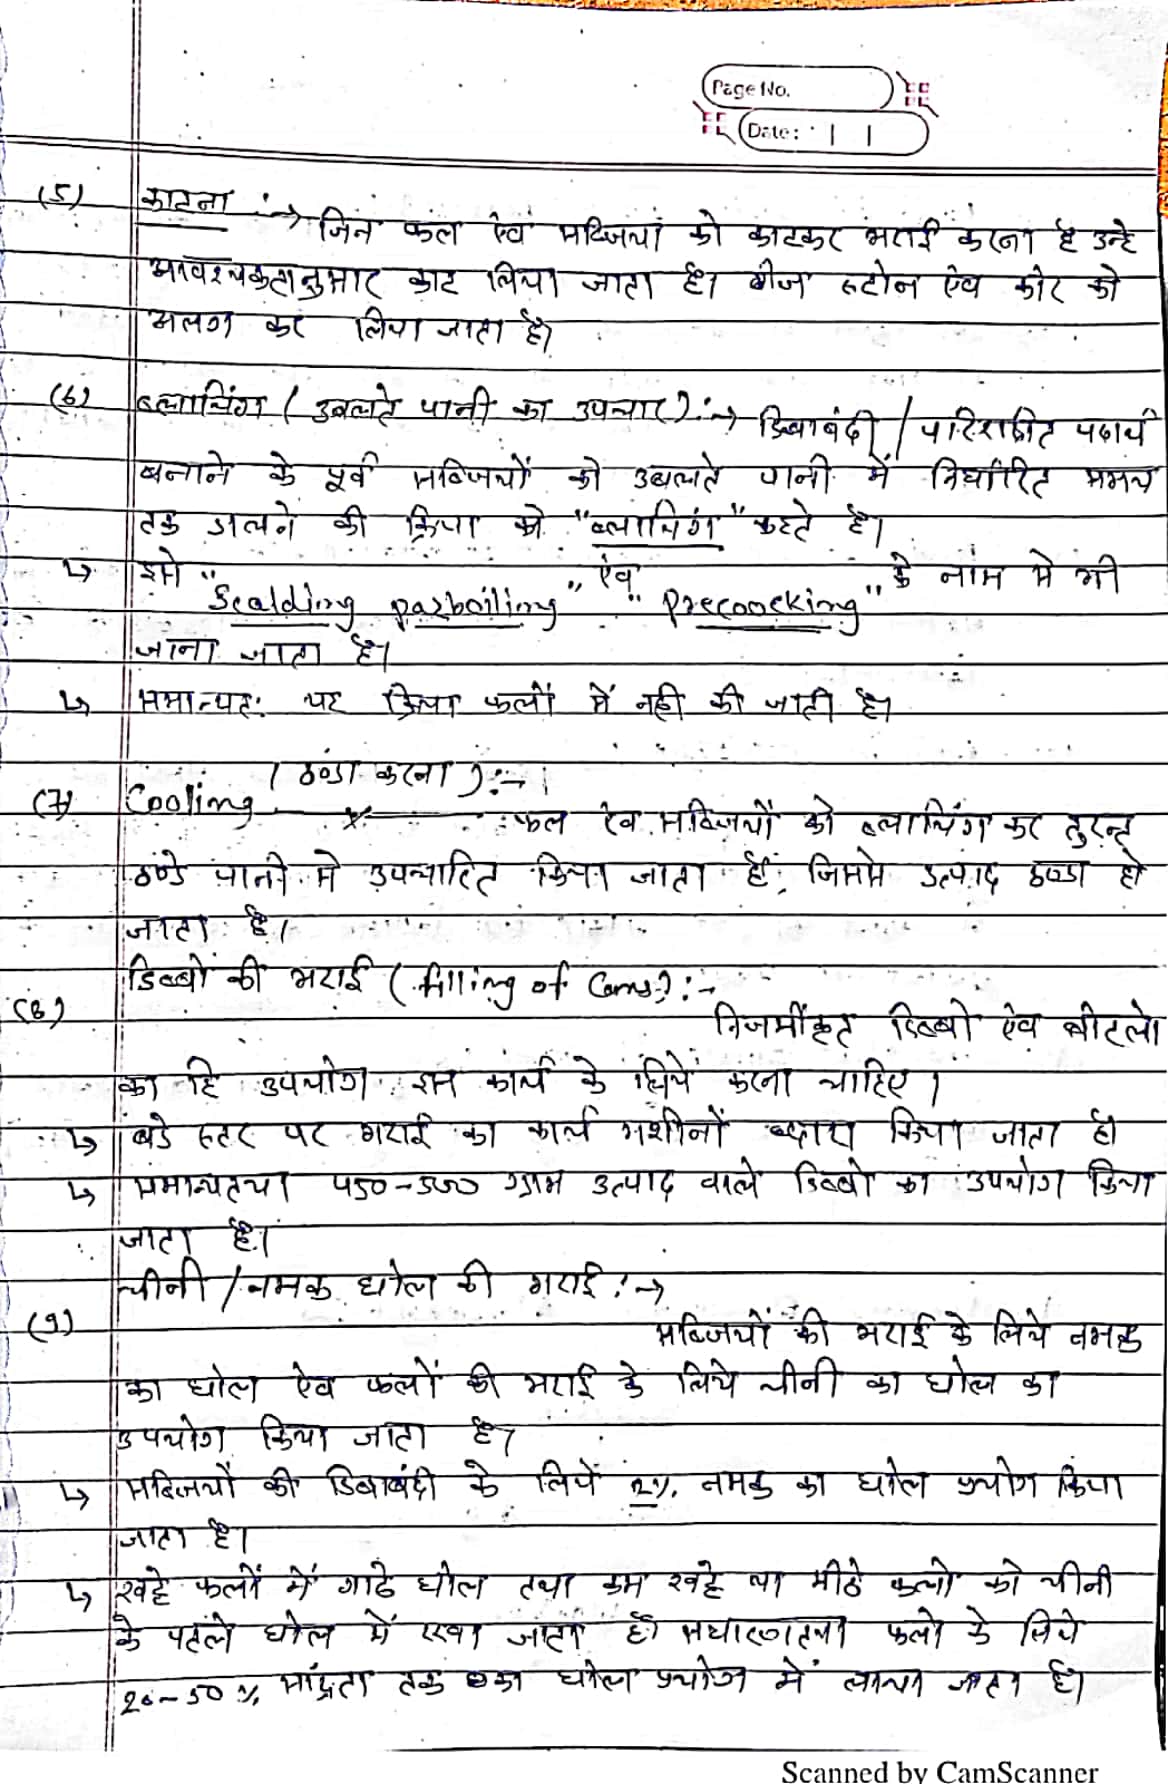 Page No.
Date: | |
(5) काटना :→ जिन फल ऐवं सब्जियों को काटकर भराई करना है उन्हे
आवश्यकतानुसार काट लिया जाता है। बीज स्टोन ऐव कोर को
अलग कर लिया जाता है।
(6) ब्लाचिंग ( उबलते पानी का उपचार ) :→ डिब्बाबंदी / परिरक्षित पदार्थ
बनाने के पूर्व सब्जियों को उबलते पानी में निर्धारित समय
तक डालने की क्रिया को "ब्लाचिंग" कहते है।
↳ इसे "Scalding parboiling" ऐंव "Precoocking" के नाम से भी
जाना जाता है।
↳ समान्यत: यह क्रिया फलों में नही की जाती है।
(7) Cooling ( ठण्डा करना ) :- फल ऐव सब्जियों को ब्लाचिंग कर तुरन्त
ठण्डे पानी मे उपचारित किया जाता है, जिससे उत्पाद ठण्डा हो
जाता है।
(8) डिब्बों की भराई ( filling of Cans ) :-
निजर्मीकृत डिब्बो ऐव बोटलो
का हि उपयोग इस कार्य के लिये करना चाहिए।
↳ बडे स्तर पर भराई का कार्य मशीनों द्वारा किया जाता है।
↳ समान्यतया 450-500 ग्राम उत्पाद वाले डिब्बो का उपयोग किया
जाता है।
(9) चीनी / नमक घोल की भराई :→
सब्जियों की भराई के लिये नमक
का घोल ऐव फलों की भराई के लिये चीनी का घोल का
उपयोग किया जाता है।
↳ सब्जियों की डिबाबंदी के लिये 2% नमक का घोल प्रयोग किया
जाता है।
↳ खट्टे फलों में गाढे घोल तथा कम खट्टे या मीठे फलो को चीनी
के पतले घोल में रखा जाता है। सधारणतया फलो के लिये
20-50% सांद्रता तक का घोल प्रयोग में लाया जाता है।
Scanned by CamScanner